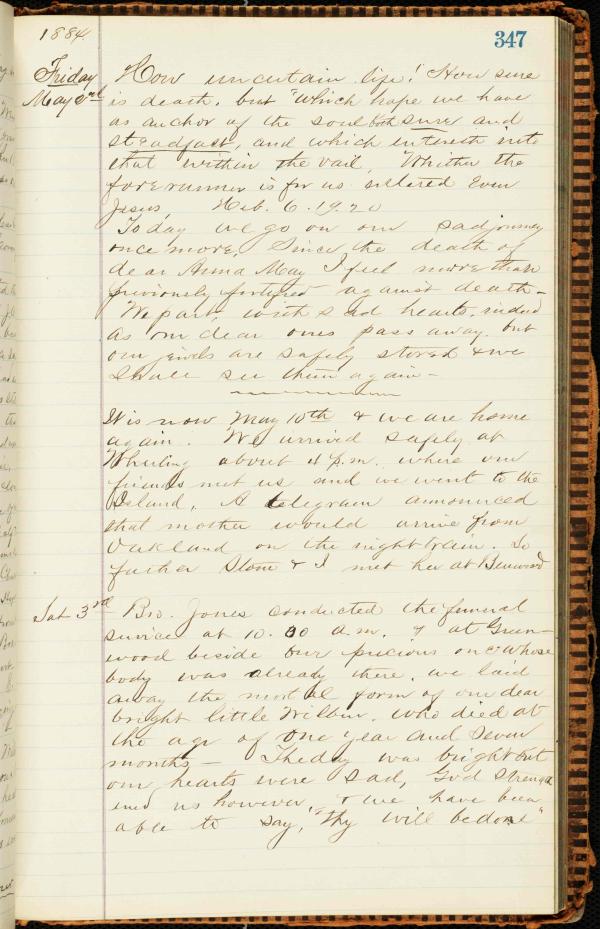 1884
347
Friday How uncertain life! How sure
May 2nd is death, but "which hope we have
as anchor of the soul both sure and
steadfast, and which entereth into
that within the vail, Whither the
forerunner is for us entered Even
Jesus, Heb. 6. 19. 20
To day we go on our sad journey
once more. Since the death of
dear Anna May I feel more than
previously fortified against death –
We part, with sad hearts, indeed
as our dear ones pass away, but
our jewels are safely stored & we
shall see them again –
It is now May 10th & we are home
again. We arrived safely at
Wheeling about 4 p.m. where our
friends met us and we went to the
Island. A telegram announced
that mother would arrive from
Oakland on the night train. So
father Stone & I met her at Benwood
Sat 3rd Bro. Jones conducted the funeral
service at 10.30 a.m. & at Green-
wood beside our precious one whose
body was already there, we laid
away the mortal form of our dear
bright little Wilbur, who died at
the age of one year and seven
months – The day was bright but
our hearts were sad, God strength
ened us however, & we have been
able to say, "Thy will be done"